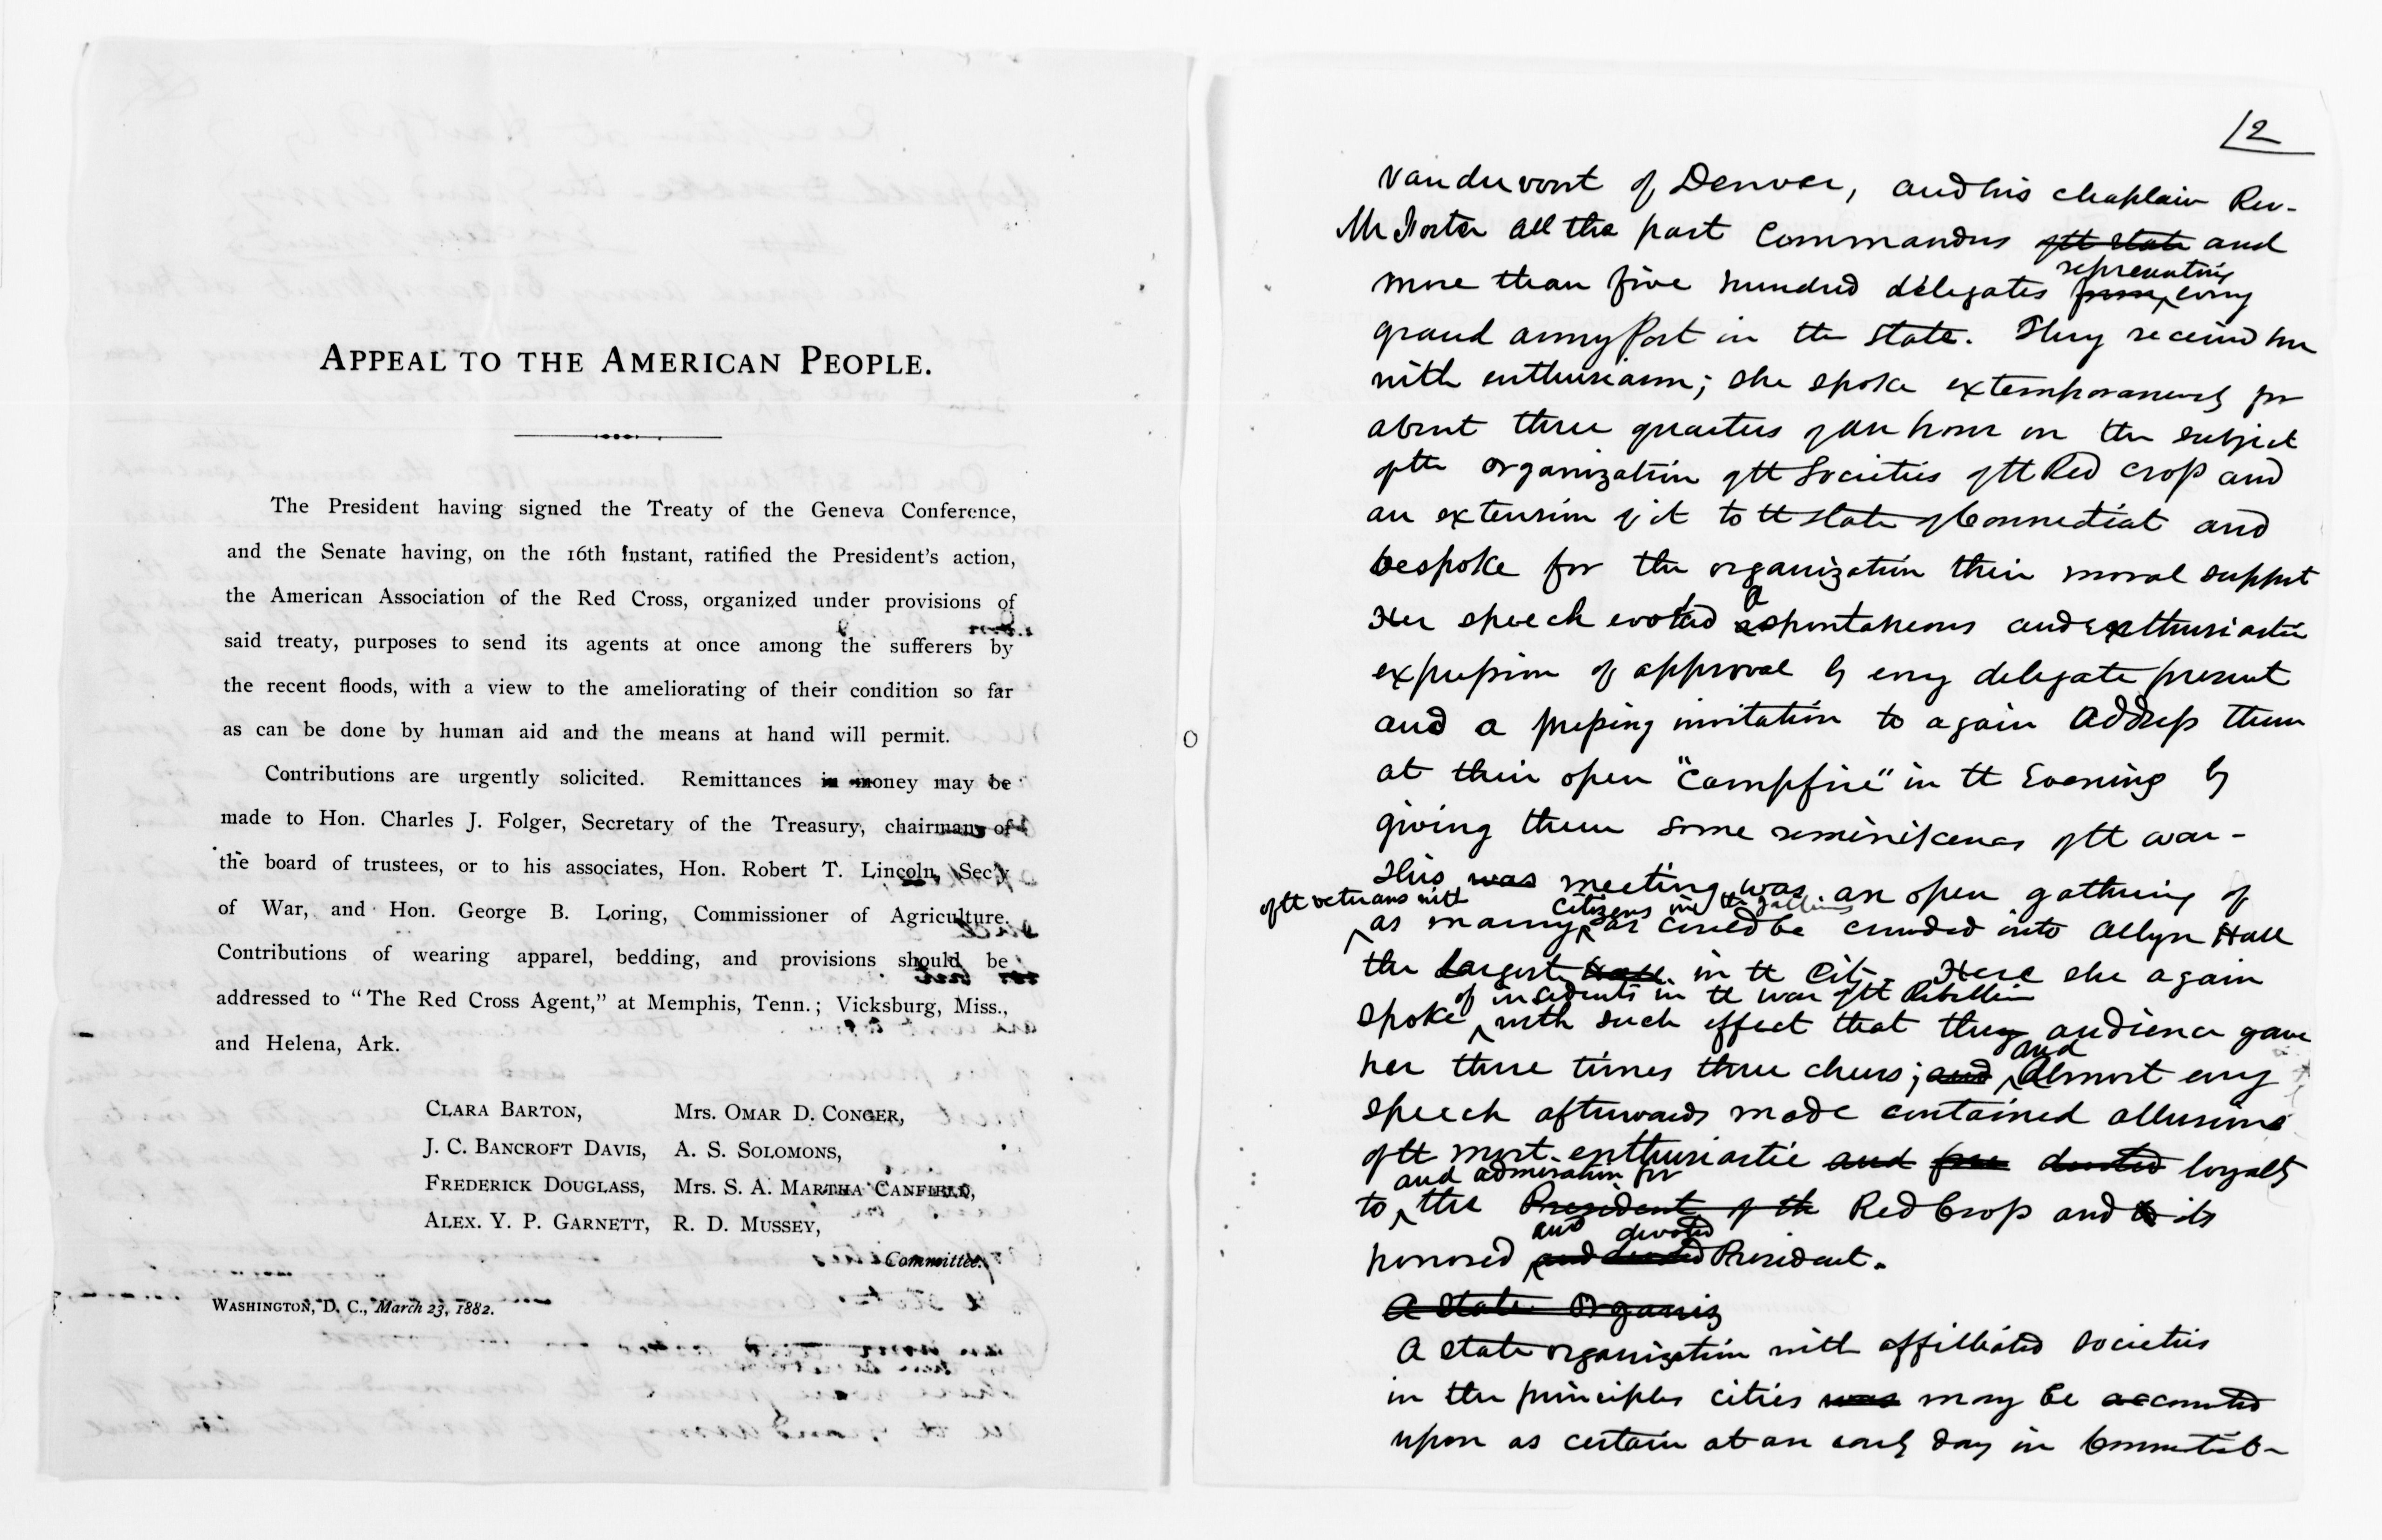 APPEAL TO THE AMERICAN PEOPLE.
The President having signed the Treaty of the Geneva Conference,
and the Senate having, on the 16th Instant, ratified the President's action,
the American Association of the Red Cross, organized under provisions of
said treaty, purposes to send its agents at once among the sufferers by
the recent floods, with a view to the ameliorating of their condition so far
as can be done by human aid and the means at hand will permit.
Contributions are urgently solicited. Remittances in money may be
made to Hon. Charles J. Folger, Secretary of the Treasury, chairman of
the board of trustees, or to his associates, Hon. Robert T. Lincoln, Sec'y
of War, and Hon. George B. Loring, Commissioner of Agriculture.
Contributions of wearing apparel, bedding, and provisions should be
addressed to "The Red Cross Agent," at Memphis, Tenn.; Vicksburg, Miss.,
and Helena, Ark.
CLARA BARTON, Mrs. OMAR D. CONGER,
J. C. BANCROFT DAVIS, A. S. SOLOMONS,
FREDERICK DOUGLASS, Mrs. S. A. MARTHA CANFIELD,
ALEX. Y. P. GARNETT, R. D. MUSSEY,
Committee.
WASHINGTON, D. C., March 23, 1882.
2
Vandervoort of Denver, and his chaplain Rev-
Mr Foster all the past Commanders of tt state and
representing
more than five hundred delegates from every
grand army Post in the state. They received her
with enthusiasm; she spoke extemporaneously for
about three quarters of an hour on the subject
of the organization of tt Societies of tt Red Cross and
an extension of it to tt state of Connecticut and
bespoke for the organization their moral support
Her speech evoked a spontaneous and enthusiastic
expression of approval by every delegate present
and a pressing invitation to again Address them
at their open "Campfire" in tt Evening by
giving them some reminiscences of tt war-
This was meeting was an open gathering of
of tt veterans with citizens in tt galleries
as many as could be crowded into Allyn Hall
the largest in tt City. Here she again
of incidents in tt war of tt Rebellion
spoke with such effect that they audience gave
and
her three times three cheers; and almost every
speech afterwards made contained allusions
of tt most enthusiastic and devoted loyalty
and admiration for
to the President of the Red Cross and to its
and devoted
honored and devoted President.
A State Organiz
A state organization with affilliated societies
in the principles cities was may be accounted
upon as certain at an early day in